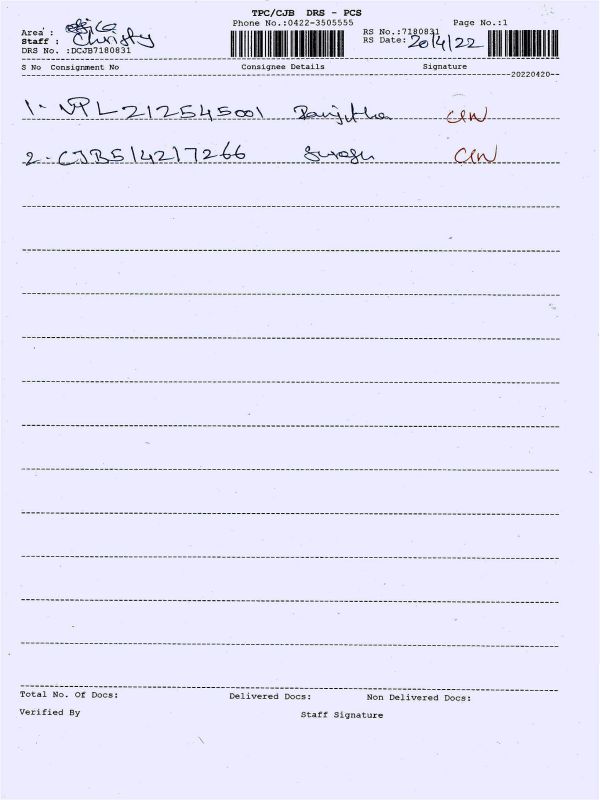 TPC/CJB DRS - PCS
Phone No.:0422-3505555
Page No.:1
Area :
Staff : Christy
DRS No. :DCJB7180831
RS No.:7180831
RS Date: 20/4/22
S No Consignment No Consignee Details Signature
--20220420--
1. VPL212545001 Ranjitha
2. CJB514217266
Total No. Of Docs: Delivered Docs: Non Delivered Docs:
Verified By Staff Signature